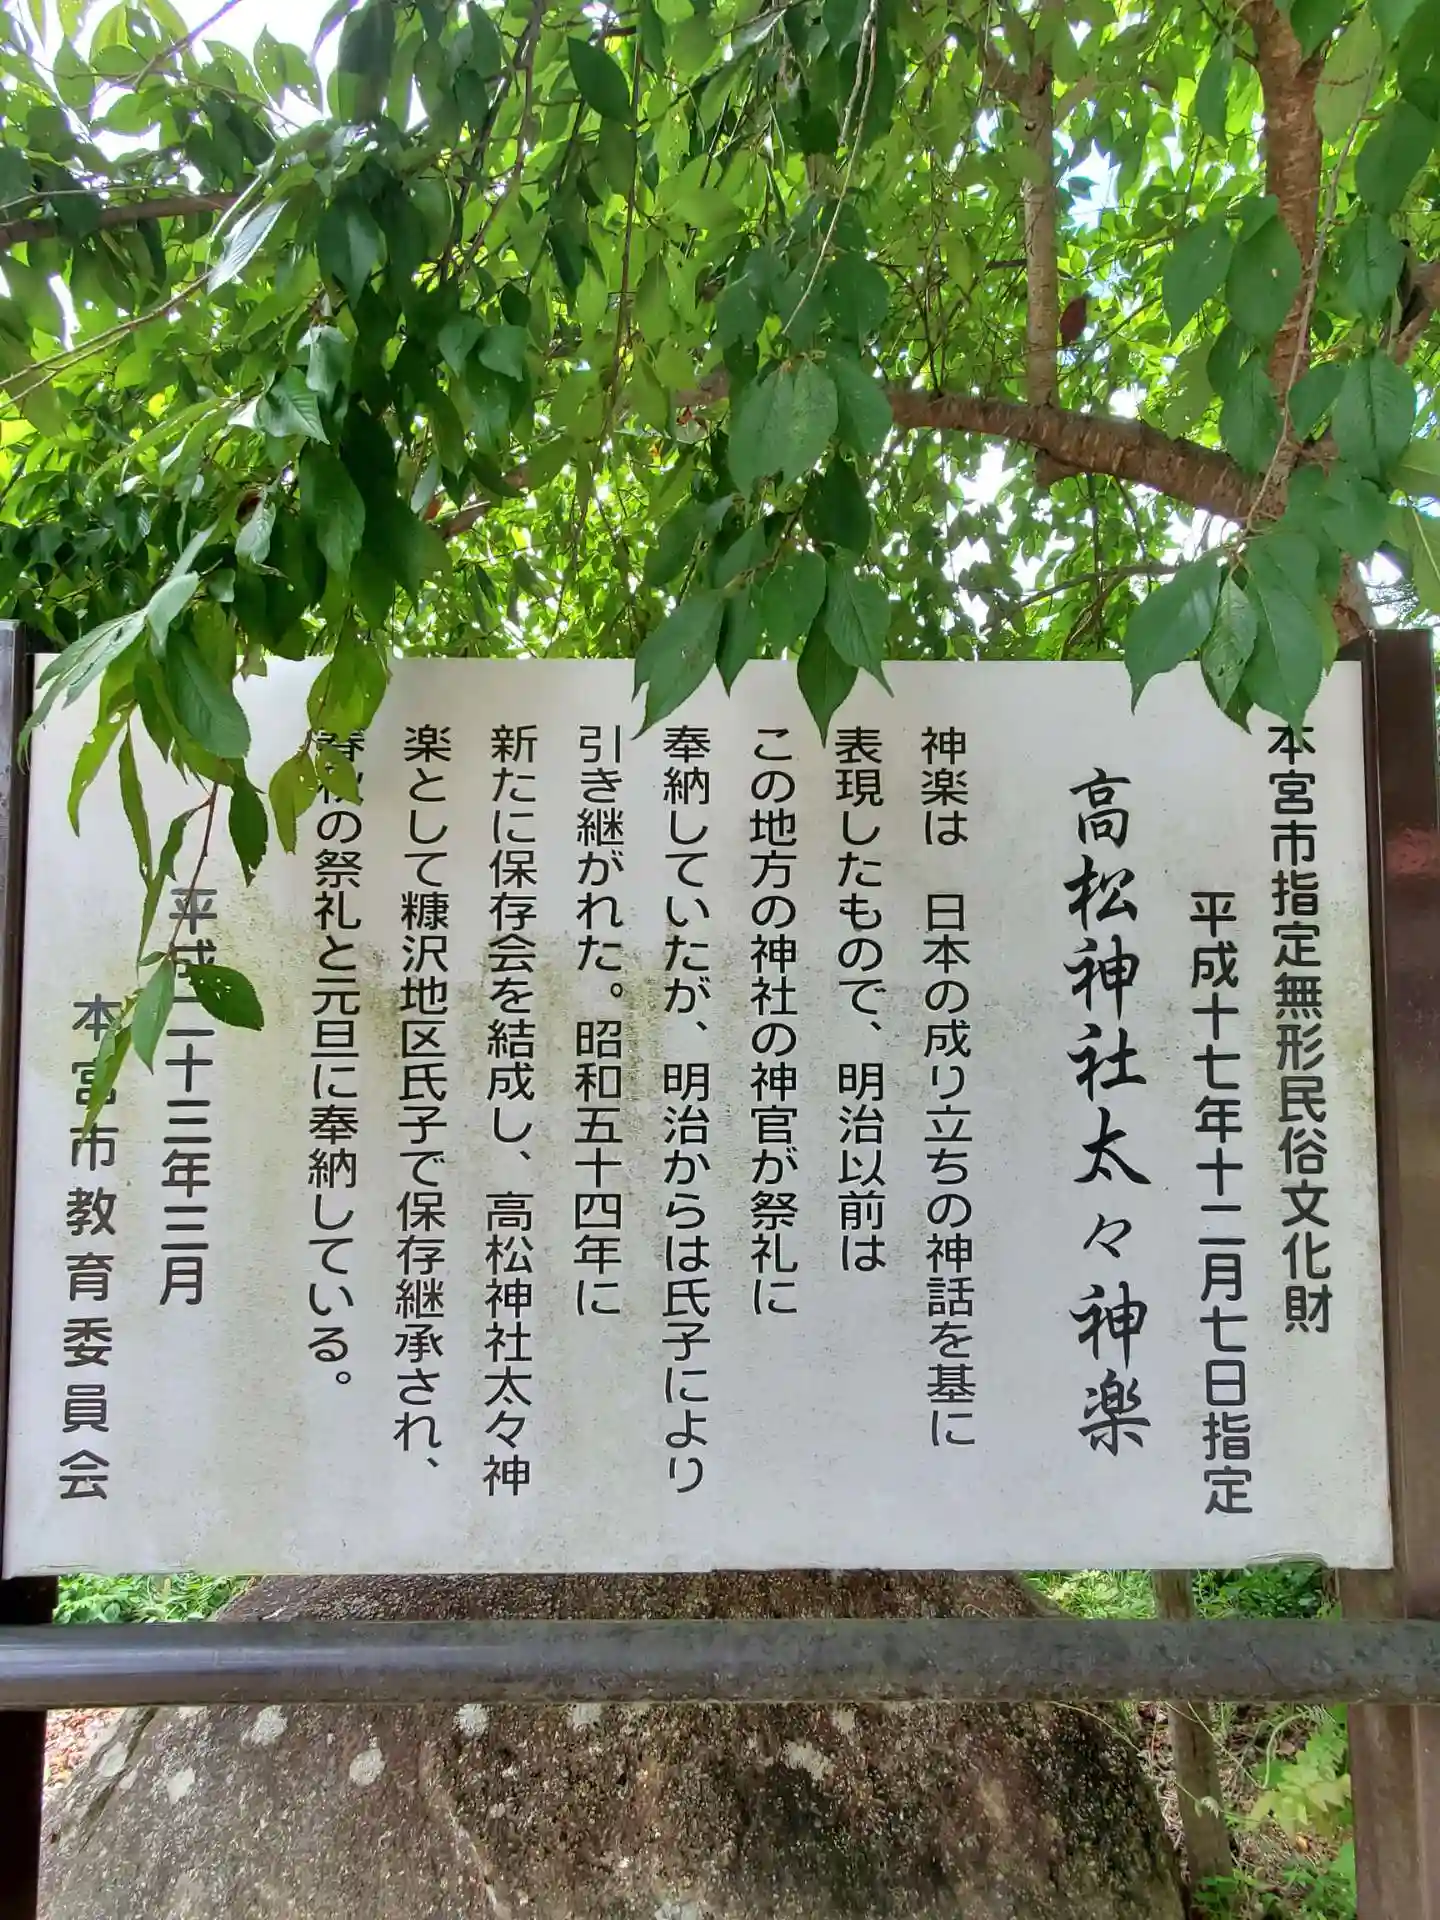 本宮市指定無形民俗文化財
平成十七年十二月七日指定
高松神社太々神楽
神楽は 日本の成り立ちの神話を基に
表現したもので、明治以前は
この地方の神社の神官が祭礼に
奉納していたが、明治からは氏子により
引き継がれた。昭和五十四年に
新たに保存会を結成し、高松神社太々神
楽として糠沢地区氏子で保存継承され、
春秋の祭礼と元旦に奉納している。
平成二十三年三月
本宮市教育委員会